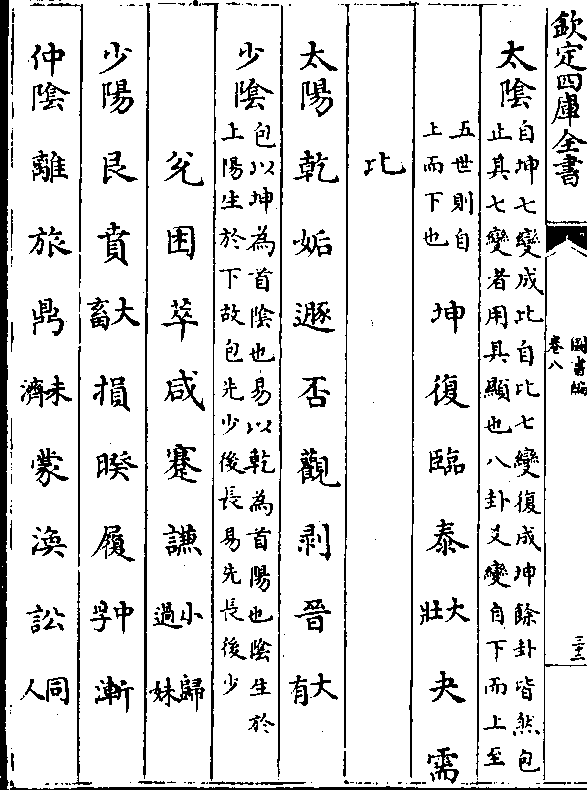 欽定四庫全書
圖書編
卷八
三十三
太陰自坤七變成比自比七變復成坤餘卦皆然包
止其七變者用其顯也八卦爻變自下而上至
五世則自
上而下也
坤復臨泰大壯夬需
比
太陽乾姤遯否觀剥晉大有
少陰包以坤為首陰也易以乾為首陽也陰生於
上陽生於下故包先少後長易先長後少
兊困萃咸蹇謙小過歸妹
少陽艮賁大畜損睽履中孚漸
仲陰離旅鼎未濟蒙渙訟同人